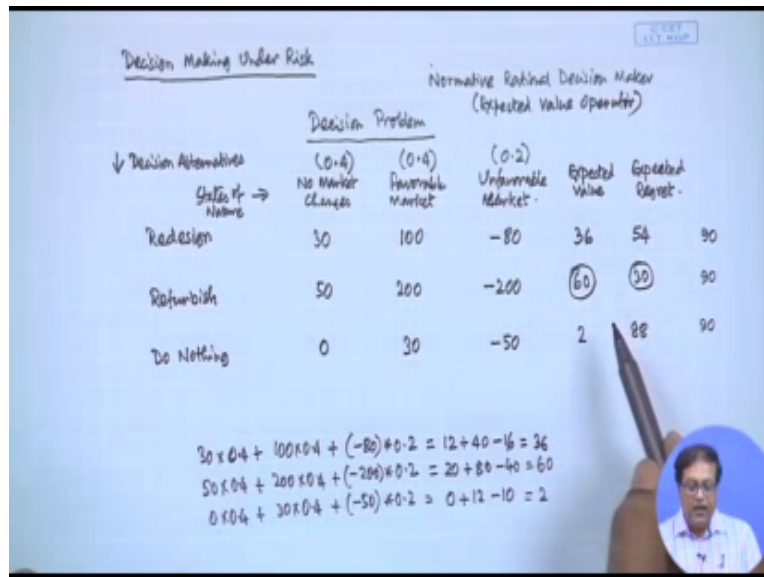 C-CET
I.I.T. KGP
Decision Making Under Risk
Normative Rational Decision Maker
(Expected Value Operator)
Decision Problem
↓ Decision Alternatives
States of Nature →
(0.4) No Market Changes
(0.4) Favorable Market
(0.2) Unfavorable Market.
Expected Value
Expected Regret.
Redesign 30 100 -80 36 54 90
Refurbish 50 200 -200 60 30 90
Do Nothing 0 30 -50 2 88 90
30 x 0.4 + 100x0.4 + (-80)*0.2 = 12+40-16 = 36
50x0.4 + 200x0.4 + (-200)*0.2 = 20+80-40 = 60
0x0.4 + 30x0.4 + (-50)*0.2 = 0+12-10 = 2